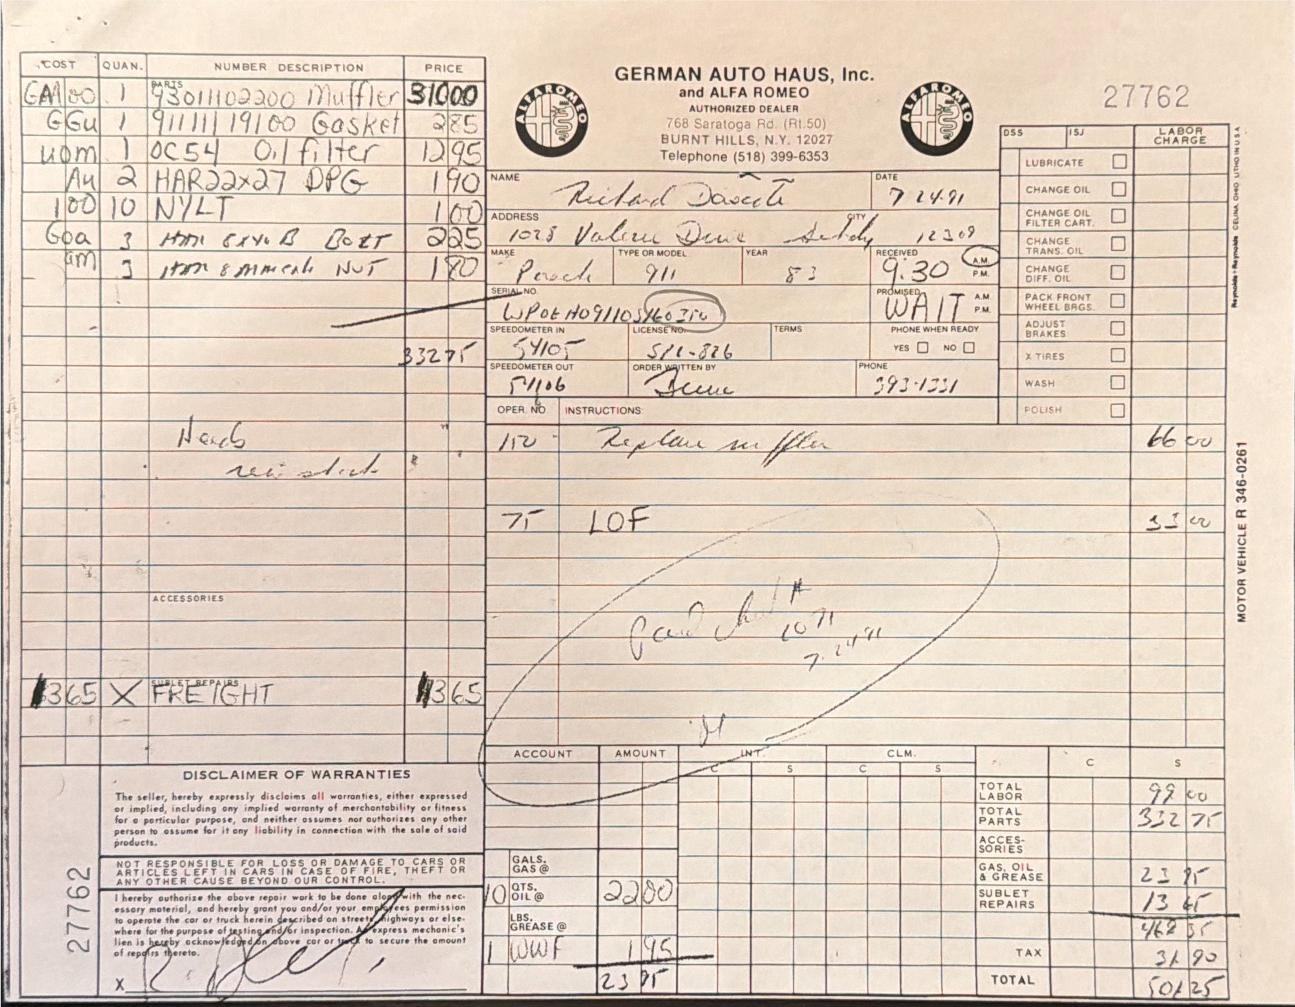 COST QUAN. NUMBER DESCRIPTION PRICE
PARTS
1 93011102200 Muffler 310 00
1 91111119100 Gasket 2 85
1 OC54 Oil filter 12 95
2 HAR22x27 DPG 1 90
100 10 NYLT 1 00
3 8x40 B BOLT 2 25
3 NUT 1 80
332 75
Needs
ACCESSORIES
SUBLET REPAIRS
1365 X FREIGHT 1365
GERMAN AUTO HAUS, Inc.
and ALFA ROMEO
AUTHORIZED DEALER
768 Saratoga Rd. (Rt.50)
BURNT HILLS, N.Y. 12027
Telephone (518) 399-6353
ALFA ROMEO
ALFA ROMEO
27762
NAME Richard
DATE 7 24 91
ADDRESS 1028 Drive
CITY 12309
MAKE Porsche
TYPE OR MODEL 911
YEAR 83
RECEIVED 9:30 A.M. P.M.
SERIAL NO.
PROMISED WAIT A.M. P.M.
SPEEDOMETER IN 54105
LICENSE NO.
TERMS
PHONE WHEN READY
YES NO
SPEEDOMETER OUT 54106
ORDER WRITTEN BY
PHONE 393-1331
OPER. NO. INSTRUCTIONS:
150 Replace muffler 66 00
75 LOF 33 00
paid check #
1071
7-24-91
DSS ISJ LABOR CHARGE
LUBRICATE
CHANGE OIL
CHANGE OIL FILTER CART.
CHANGE TRANS. OIL
CHANGE DIFF. OIL
PACK FRONT WHEEL BRGS.
ADJUST BRAKES
X TIRES
WASH
POLISH
Reynolds+Reynolds CELINA, OHIO LITHO IN U.S.A.
MOTOR VEHICLE R 346-0261
27762
DISCLAIMER OF WARRANTIES
The seller, hereby expressly disclaims all warranties, either expressed
or implied, including any implied warranty of merchantability or fitness
for a particular purpose, and neither assumes nor authorizes any other
person to assume for it any liability in connection with the sale of said
products.
NOT RESPONSIBLE FOR LOSS OR DAMAGE TO CARS OR
ARTICLES LEFT IN CARS IN CASE OF FIRE, THEFT OR
ANY OTHER CAUSE BEYOND OUR CONTROL.
I hereby authorize the above repair work to be done along with the nec-
essary material, and hereby grant you and/or your employees permission
to operate the car or truck herein described on streets, highways or else-
where for the purpose of testing and/or inspection. An express mechanic's
lien is hereby acknowledged on above car or truck to secure the amount
of repairs thereto.
X
ACCOUNT AMOUNT INT. CLM.
C S C S C S
GALS. GAS @
10 QTS. OIL @ 22 00
LBS. GREASE @
1 WWF 1 95
23 95
TOTAL LABOR 99 00
TOTAL PARTS 332 75
ACCES-SORIES
GAS, OIL & GREASE 23 95
SUBLET REPAIRS 13 65
TAX
TOTAL 501 25